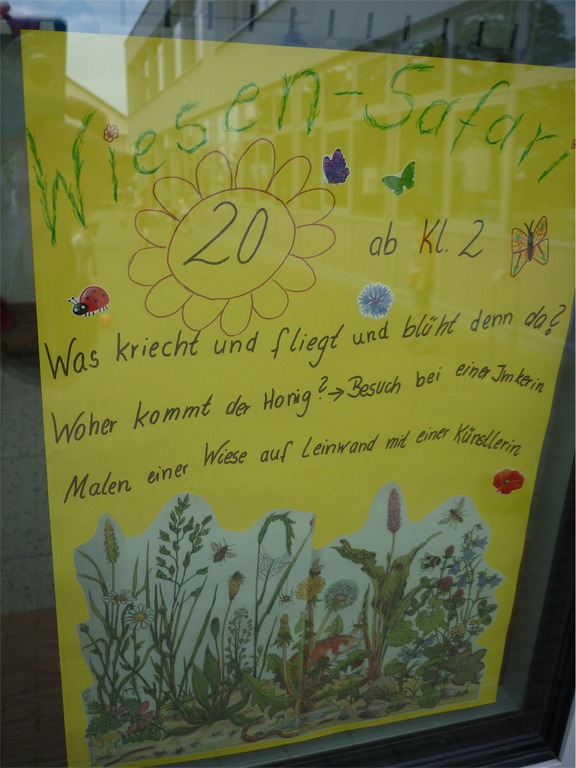 Wiesen-Safari
20
ab Kl. 2
Was kriecht und fliegt und blüht denn da?
Woher kommt der Honig? → Besuch bei einer Imkerin
Malen einer Wiese auf Leinwand mit einer Künstlerin